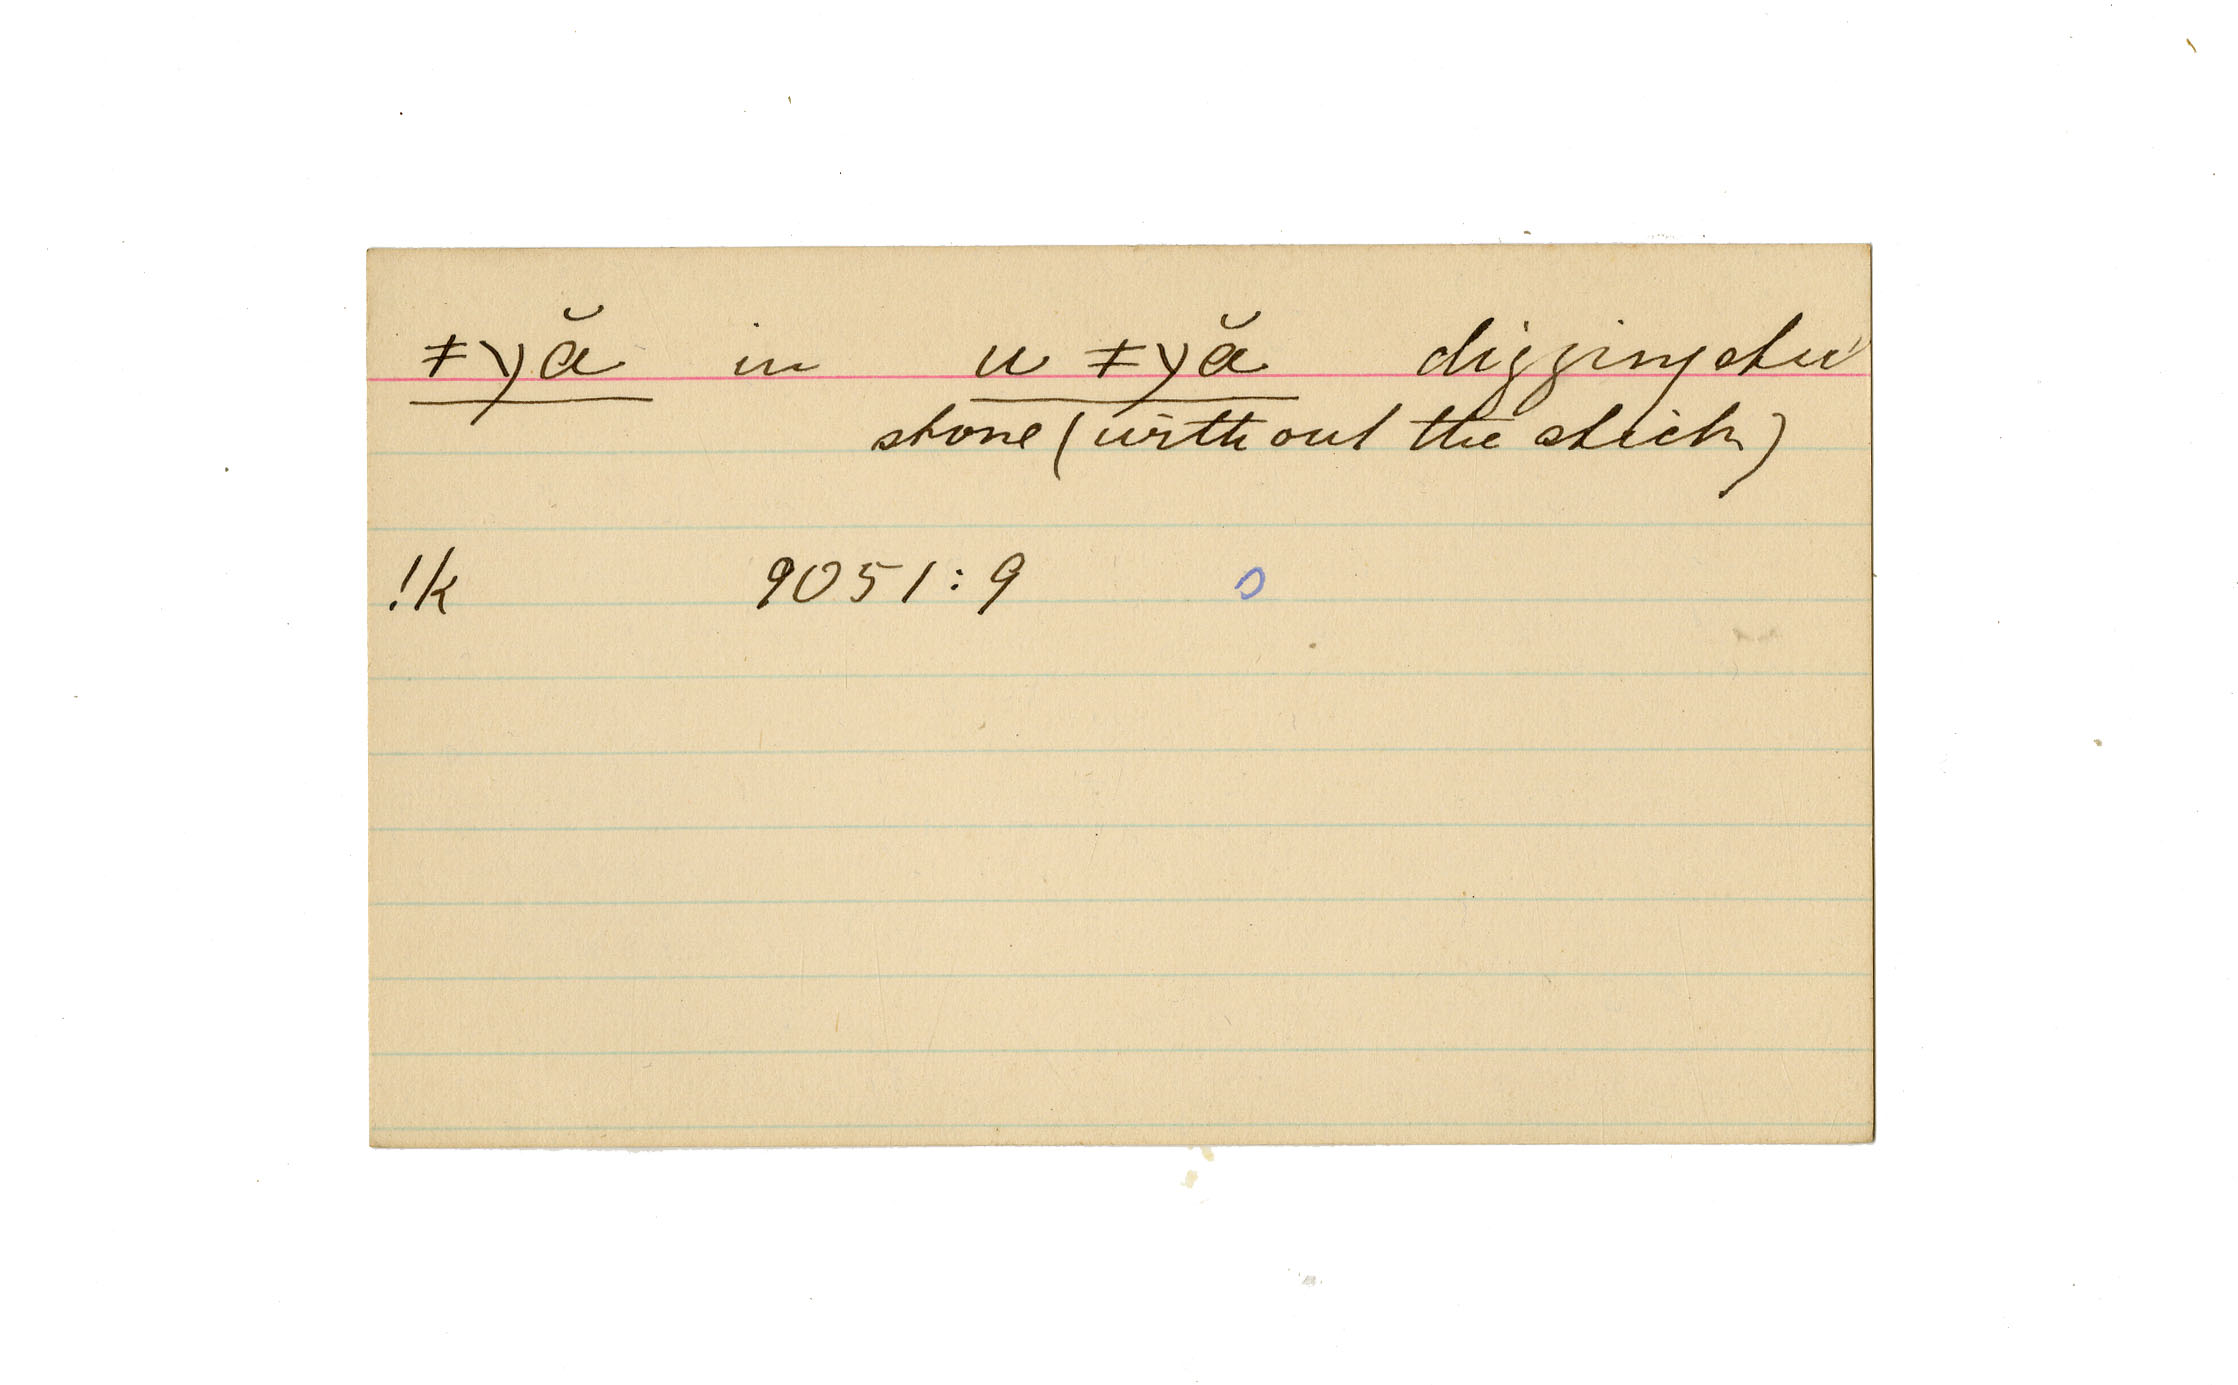 ǂyă in u ǂyă digging stick
stone (without the stick)
!k 9051:9